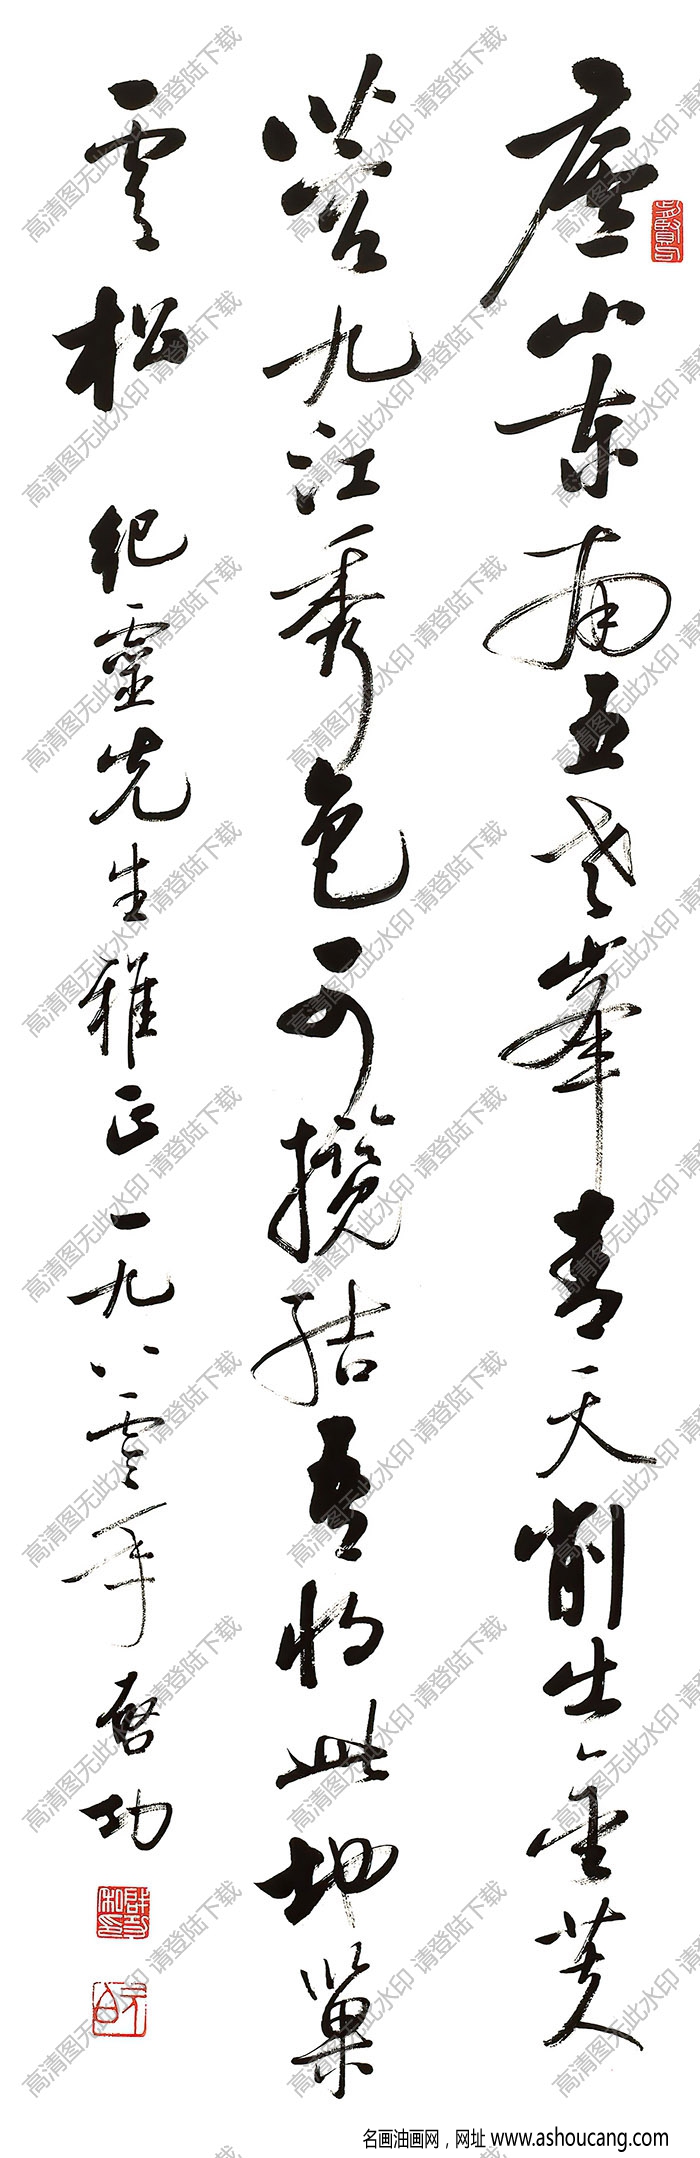 庐山东南五老峯青天削出金芙
蓉九江秀色可揽结吾将此地巢
云松
纪靈先生雅正一九八零年启功
名画油画网，网址 www.ashoucang.com
高清图无此水印 请登陆下载